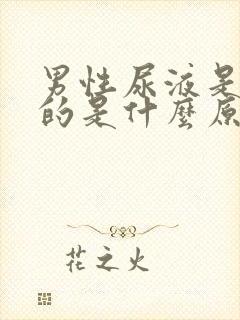 男性尿液是
的是什麼原
花之火